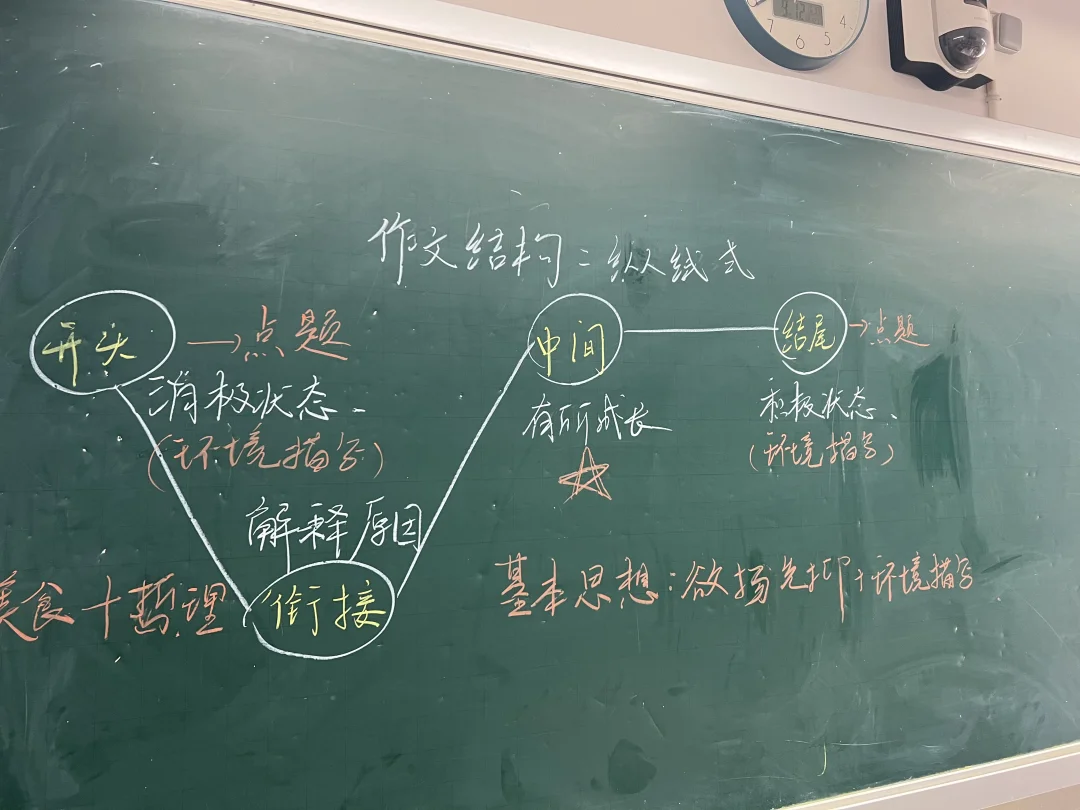 作文结构：纵线式
开头 →点题
消极状态、
(环境描写)
中间
有所成长
结尾 →点题
积极状态、
(环境描写)
解释原因
美食+哲理
衔接
基本思想：欲扬先抑+环境描写
7 6 5 4